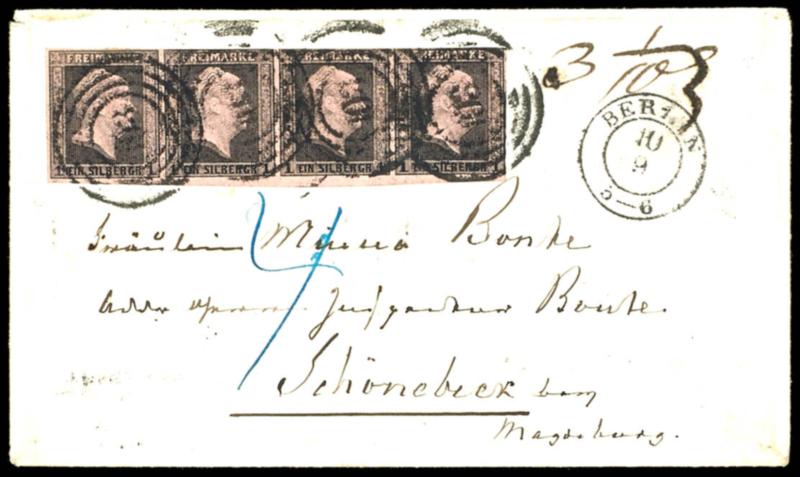 FREIMARKE FREIMARKE FREIMARKE FREIMARKE
1 EIN SILBERGR. 1 1 EIN SILBERGR. 1 1 EIN SILBERGR. 1 1 EIN SILBERGR. 1
3 1/10
BERLIN
10
9
5-6
Fräulein Minna Bonte
Inspector Bonte.
Schönebeck
Magdeburg.